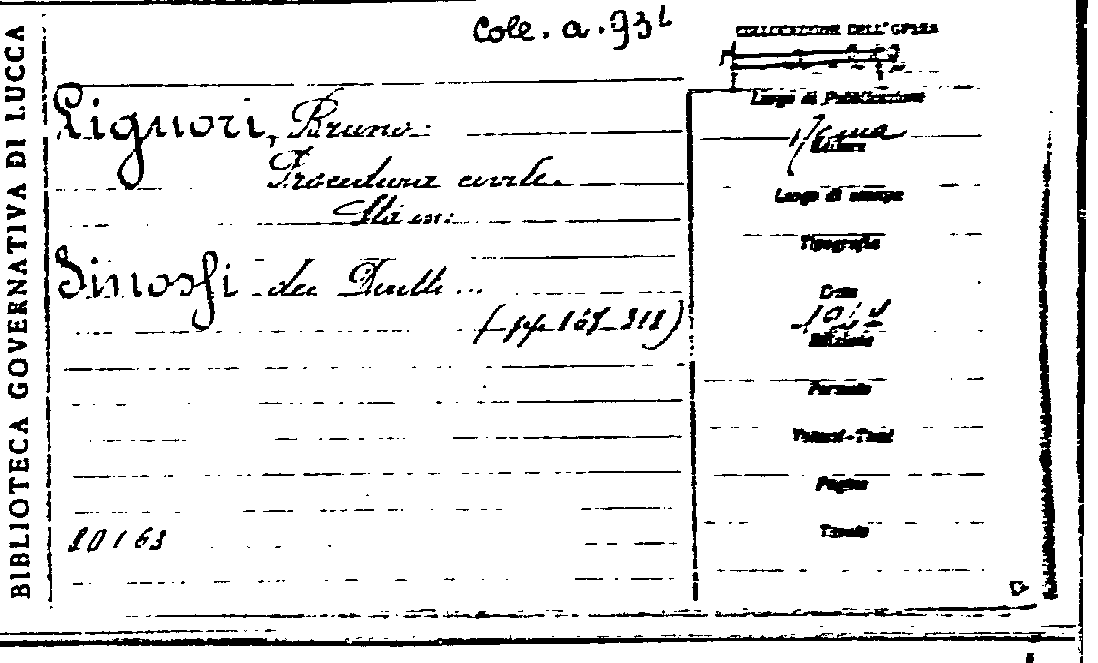 BIBLIOTECA GOVERNATIVA DI LUCCA
Coll. a. 93
COLLOCAZIONE DELL'OPERA
Liguori, Bruno.
Procedura civile.
Sta in:
Sinossi dei Diritti ...
(pp. 167-218)
20163
Luogo di Pubblicazione
Editore
Luogo di stampa
Tipografia
Data
Edizione
Formato
Volumi-Tomi
Pagine
Tavole